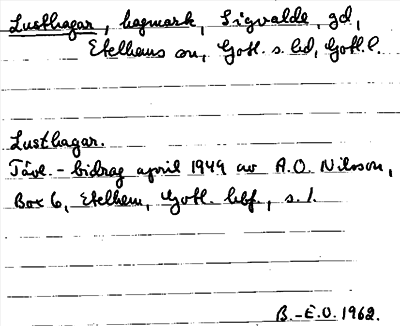 Lusthagar, hagmark, Sigvalde, gd,
Etelhems sn, Gotl. s. hd, Gotl. l.
Lusthagar.
Tävl.-bidrag april 1949 av A.O. Nilsson,
Box 6, Etelhem, Gotl. hbf., s. 1.
B.-E.O. 1962.